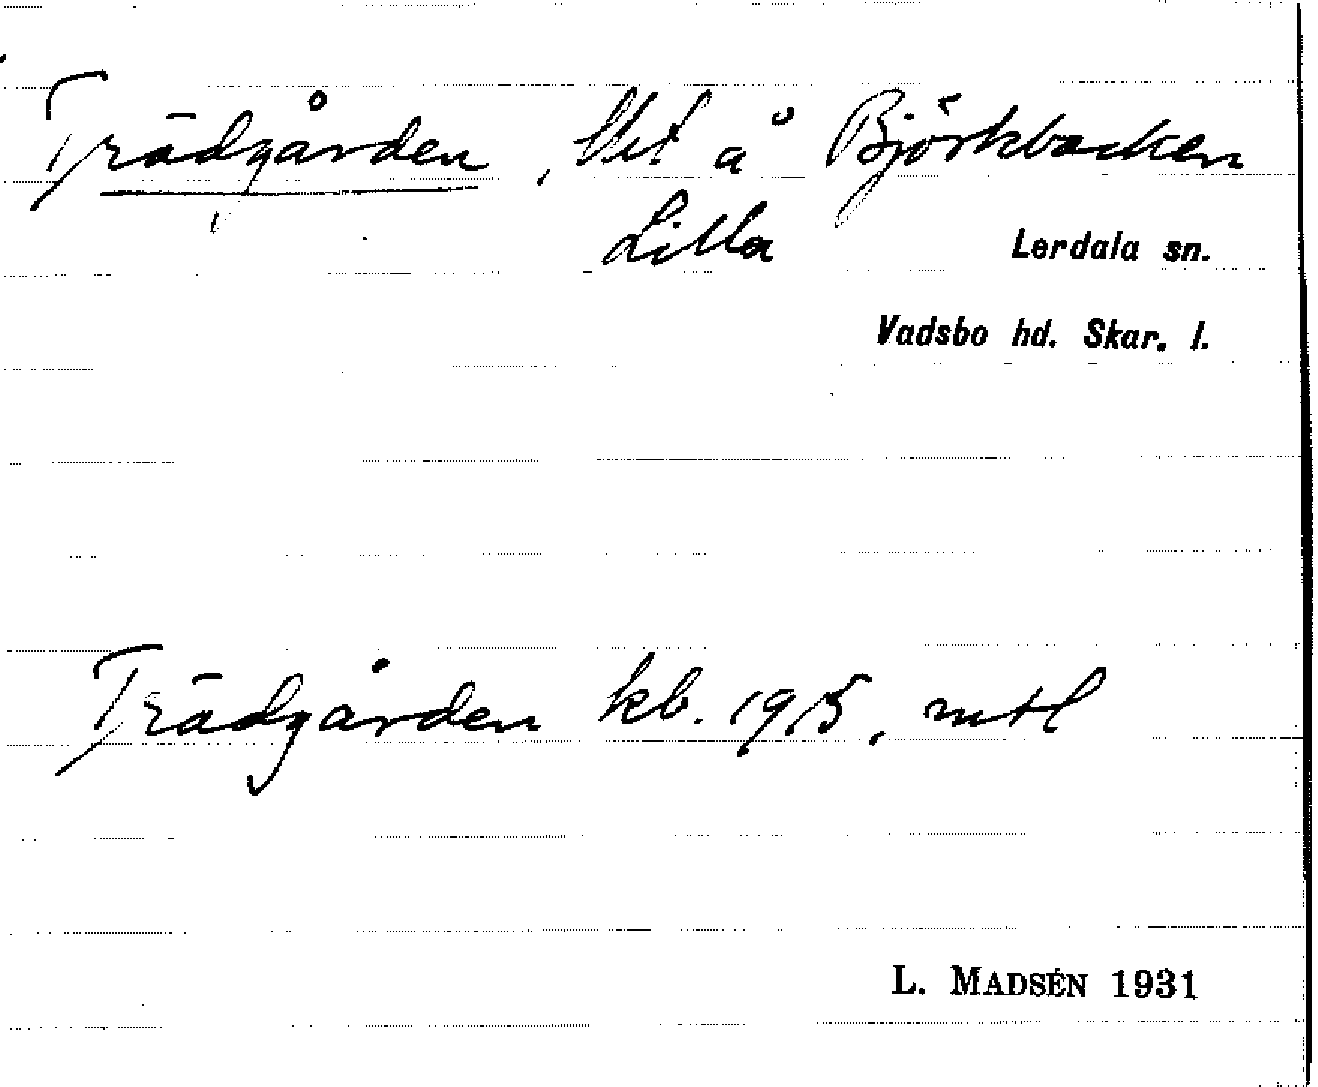 Trädgården, lht å Björkbacken
Lilla
Lerdala sn.
Vadsbo hd. Skar. l.
Trädgården kb. 1915, mtl
L. MADSÉN 1931